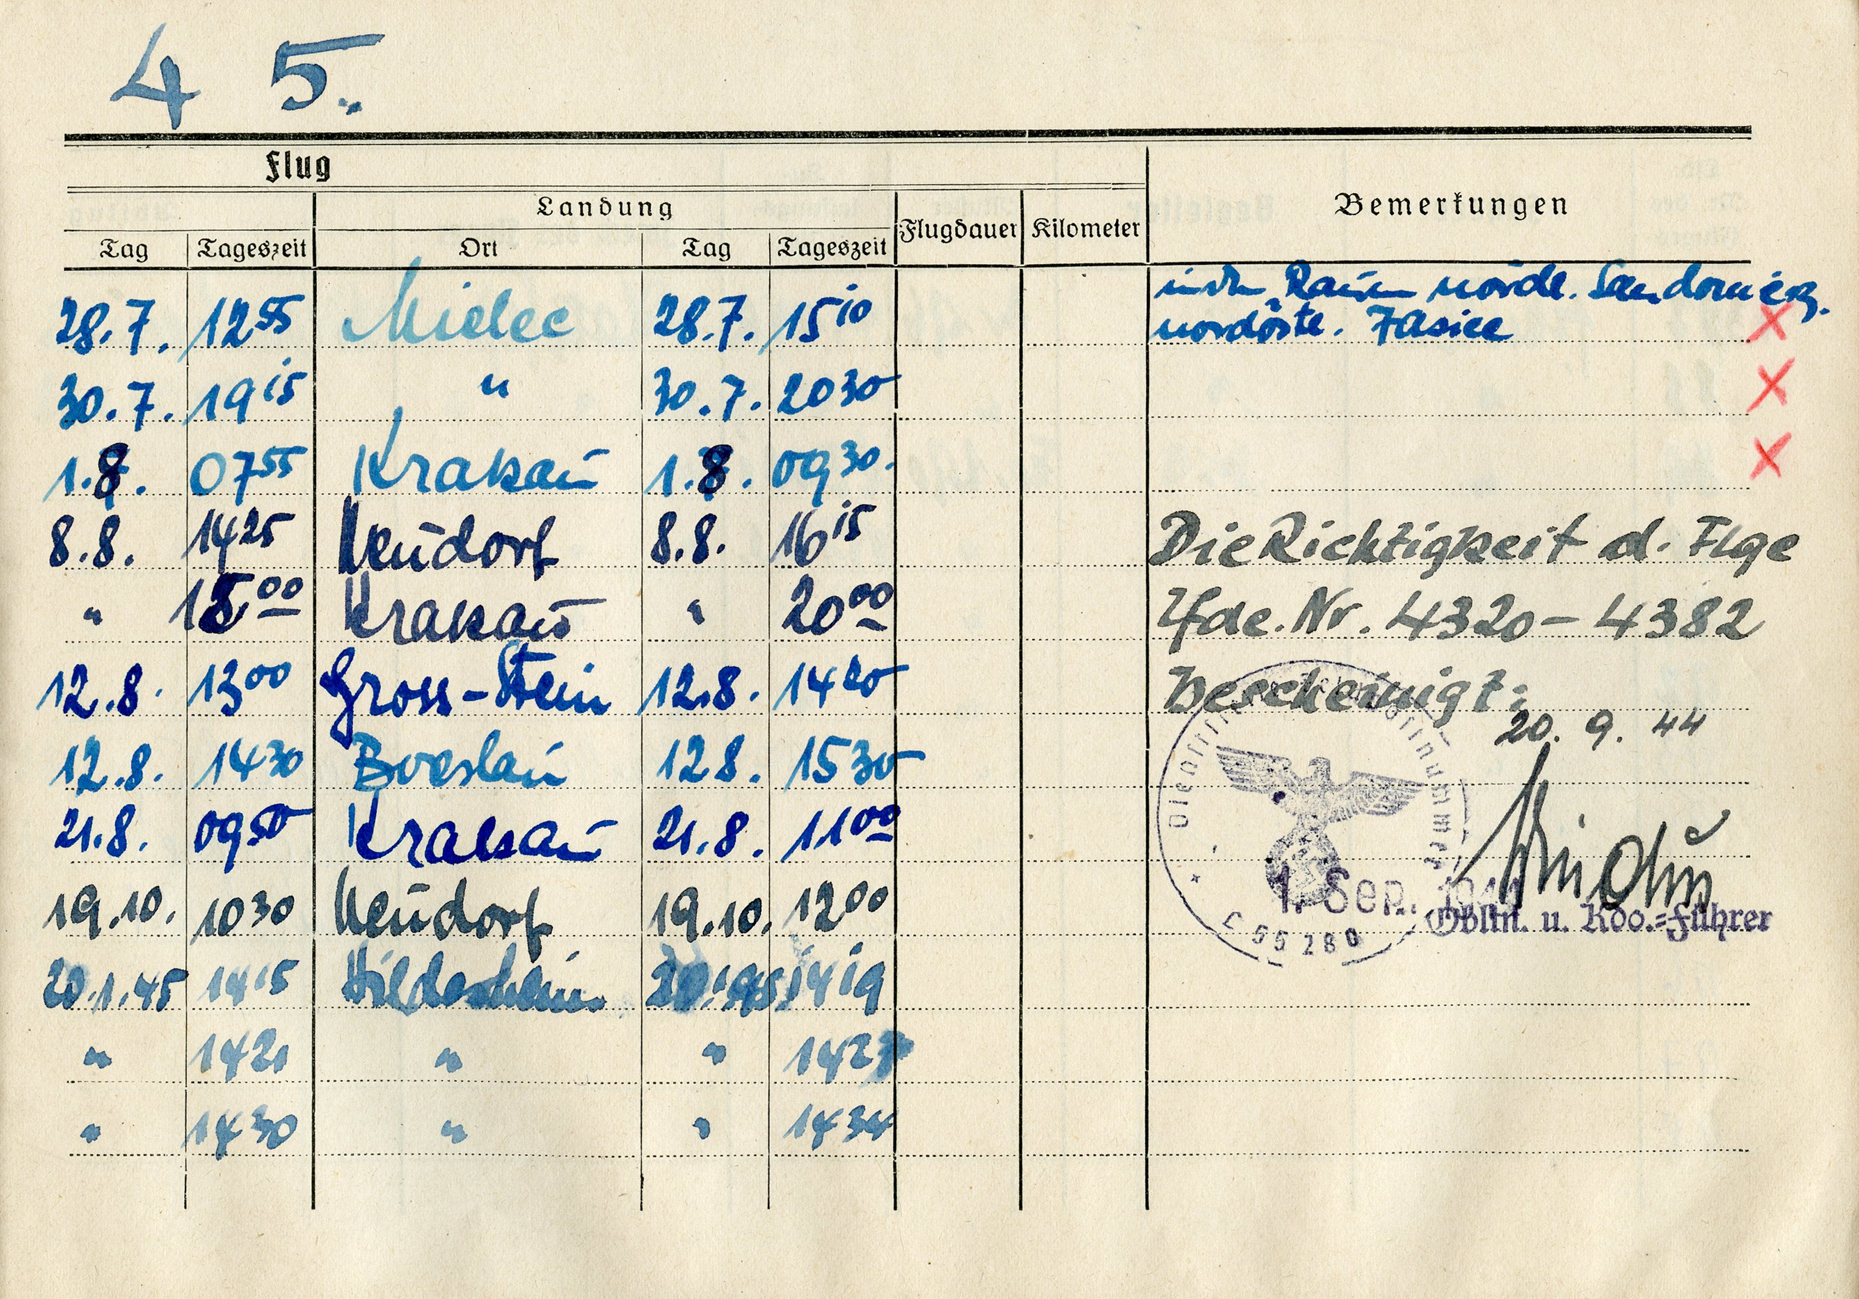 4 5.
Flug
Landung
Flugdauer Kilometer Bemerkungen
Tag Tageszeit Ort Tag Tageszeit
Raum nördl. Sandomierz.
28.7. 12 55 Mielec 28.7. 15 10 nordöstl.
30.7. 19 15 " 30.7. 20 30
1.8. 07 55 Krakau 1.8. 09 30.
8.8. 14 25 Neudorf 8.8. 16 15 Die Richtigkeit d. Flge
" 18 00 Krakau " 20 00 lfde. Nr. 4320 - 4382
12.8. 13 00 Gross-Stein 12.8. 14 20 bescheinigt:
20. 9. 44
12.8. 14 30 Breslau 12 8. 15 30
21.8. 09 50 Krakau 21.8. 11 00
19.10. 10 30 Neudorf 19.10. 12 00 1. Sep.
Obltn. u. Kdo.=Führer
L 55280
20.1.45 14 15 Hildesheim 14 19
" 14 21 " " 14 23
" 14 30 " " 14 34